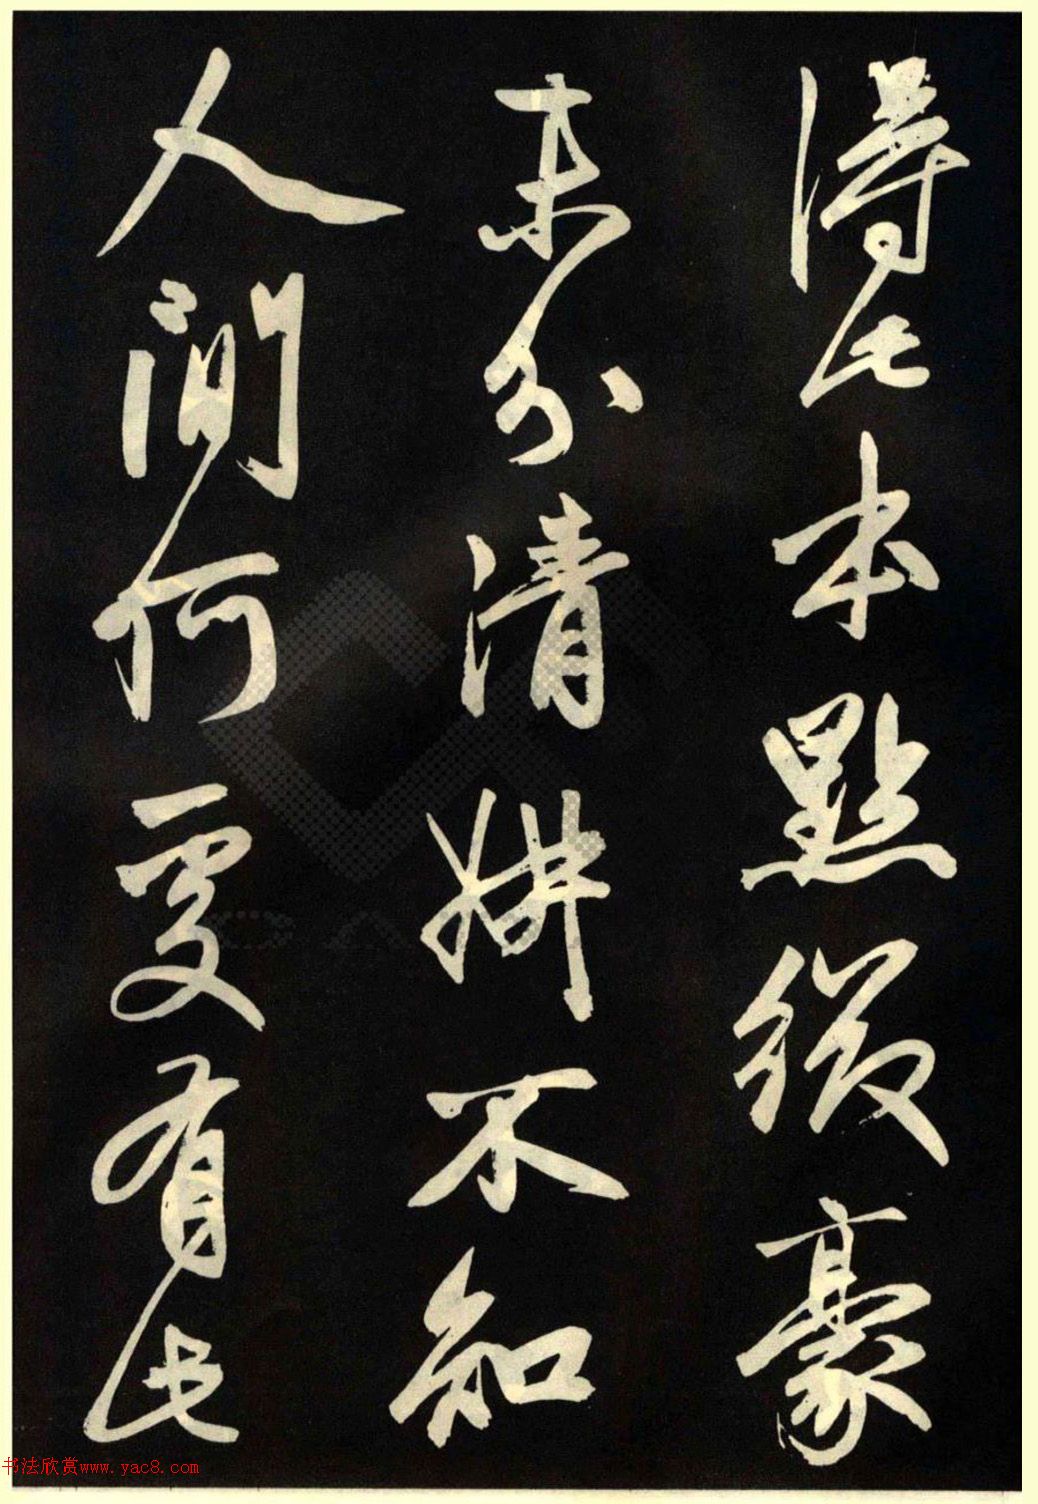 得此本點綴豪
末分清妍不知
人間何處有此
书法欣赏www.yac8.com